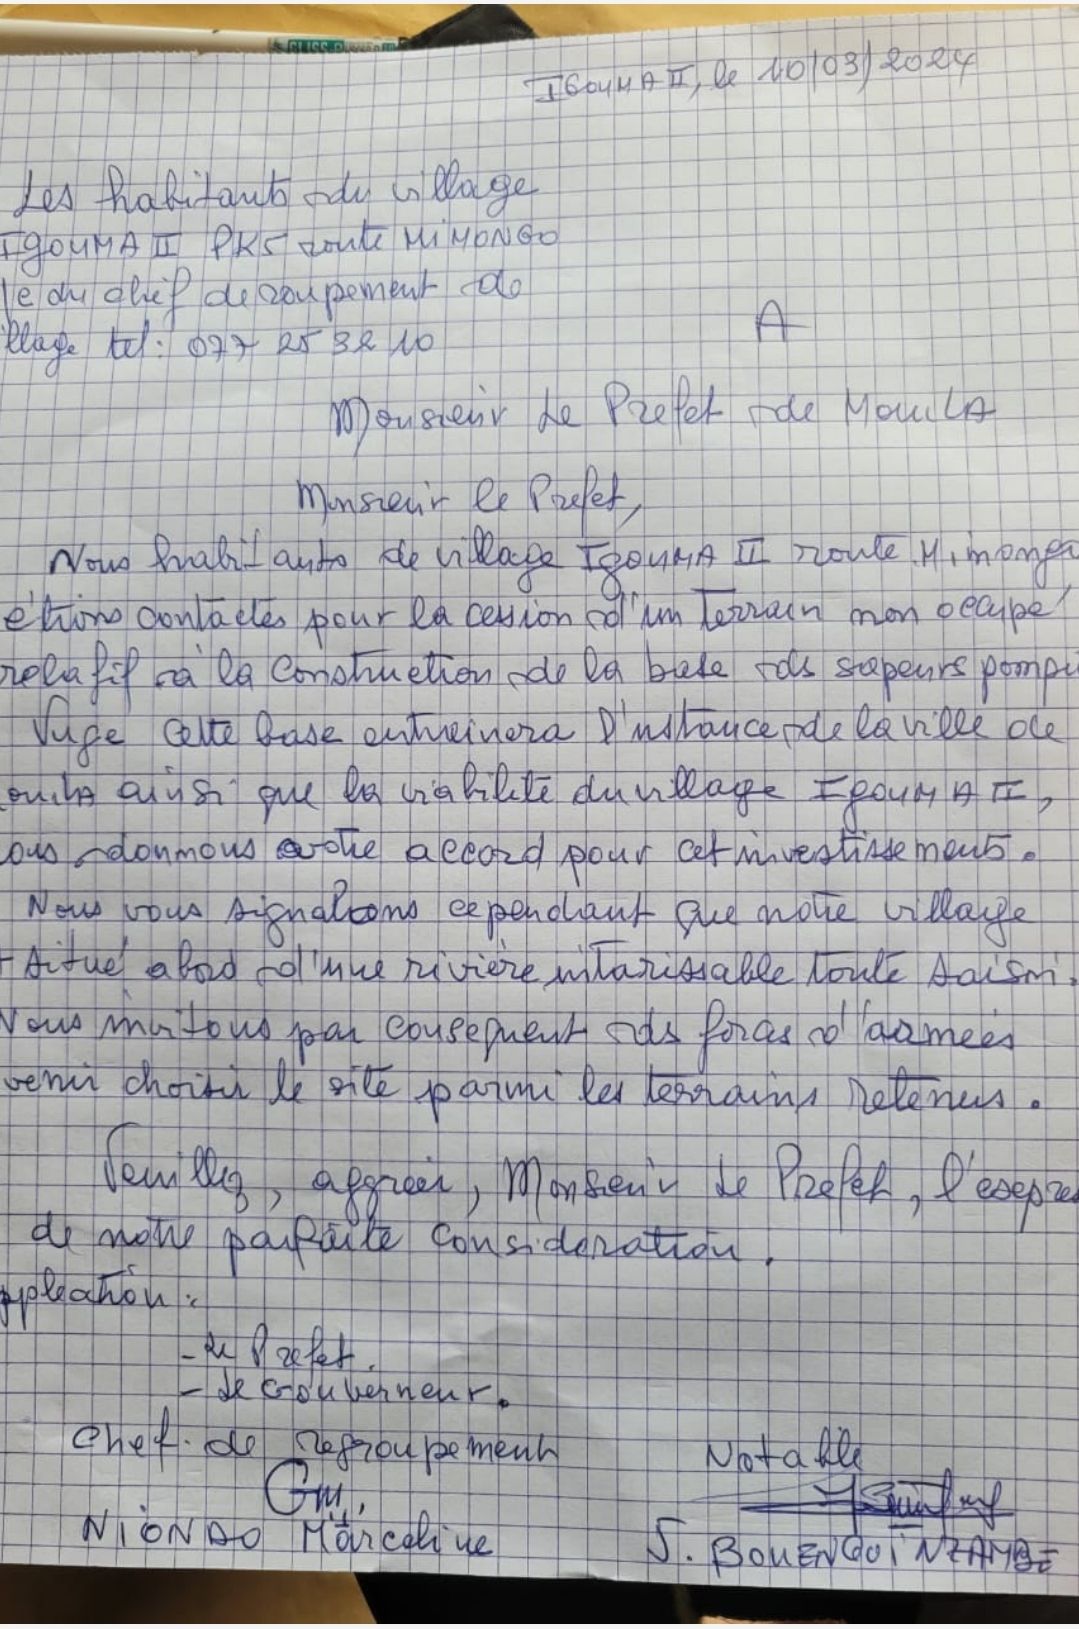 IGOUMA II, le 10/03/2024
Les habitants du village
IGOUMA II PK5 route MIMONGO
du chef de roupement de
llage tel: 077 25 32 10
A
Monsieur Le Prefet de MouiLA
Monsieur le Prefet,
Nous habitants de village IgouMA II route Mimongo
étions contactés pour la cession d'un terrain non occupé
relatif à la construction de la base des sapeurs pompi
Vuge cette base entreinera l'instance de la ville de
ouila ainsi que la viabilité du village IgouMA II,
ous donnons notre accord pour cet investissements.
Nous vous signalons cependant que notre village
t situé abord d'une rivière intarissable toute saison.
Nous invitons par consequent des forces d'armées
venir choisir le site parmi les terrains retenus.
Veuillez, aggreer, Monsieur Le Prefet, l'esepres
de notre parfaite consideration.
mpleation:
- Le Prefet.
- Le Gouverneur.
Chef de regroupement
Notable
NIONDO Marceline
J. BOUENGUI NZAMBE